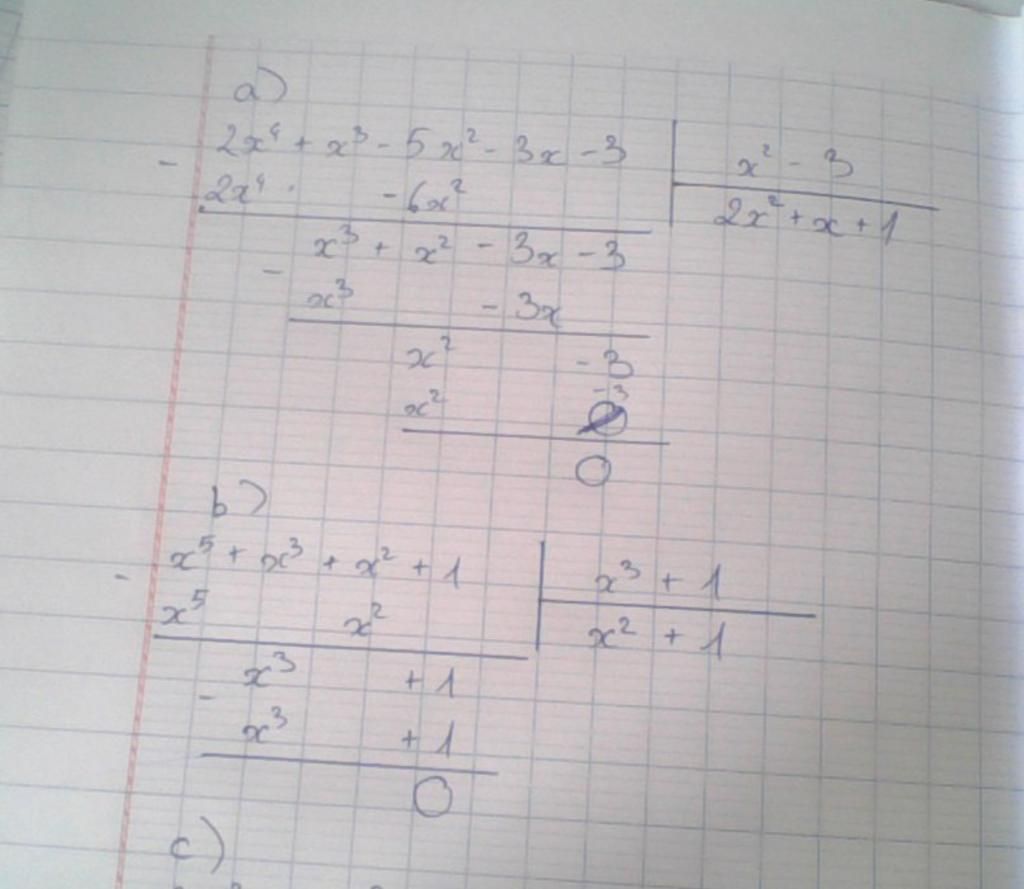 a)
2x⁴ + x³ - 5x² - 3x - 3 | x² - 3
- 2x⁴ - 6x² | 2x² + x + 1
x³ + x² - 3x - 3
- x³ - 3x
x² - 3
x² -3
0
b)
x⁵ + x³ + x² + 1 | x³ + 1
- x⁵ x² | x² + 1
x³ + 1
- x³ + 1
0
c)